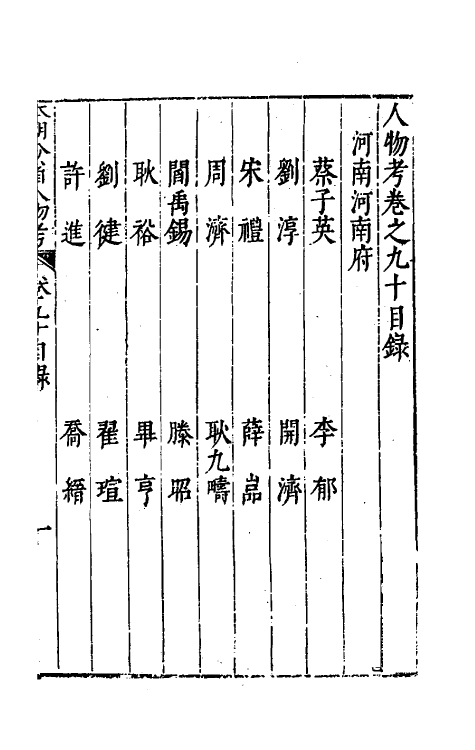 人物考卷之九十目錄
河南河南府
蔡子英 李郁
劉淳 開濟
宋禮 薛嵓
周濟 耿九疇
閻禹錫 滕昭
耿裕 畢亨
劉健 翟瑄
許進 喬縉
本朝分省人物考 卷之九十目錄 一